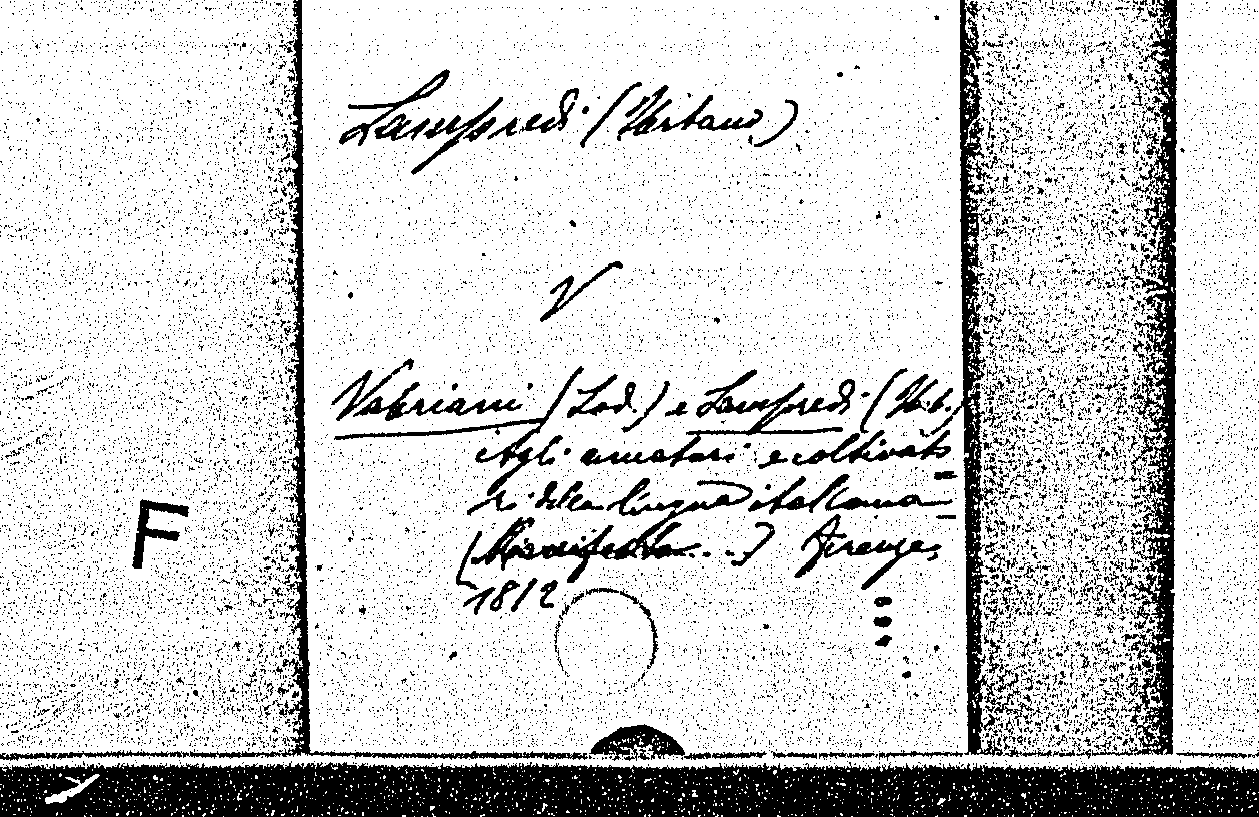 Lampredi (Urbano)
V
Valeriani (Lod.) e Lampredi (Urb.)
Agli amatori e coltivato=
ri della lingua italiana
(Manifesto...) Firenze,
1812
F